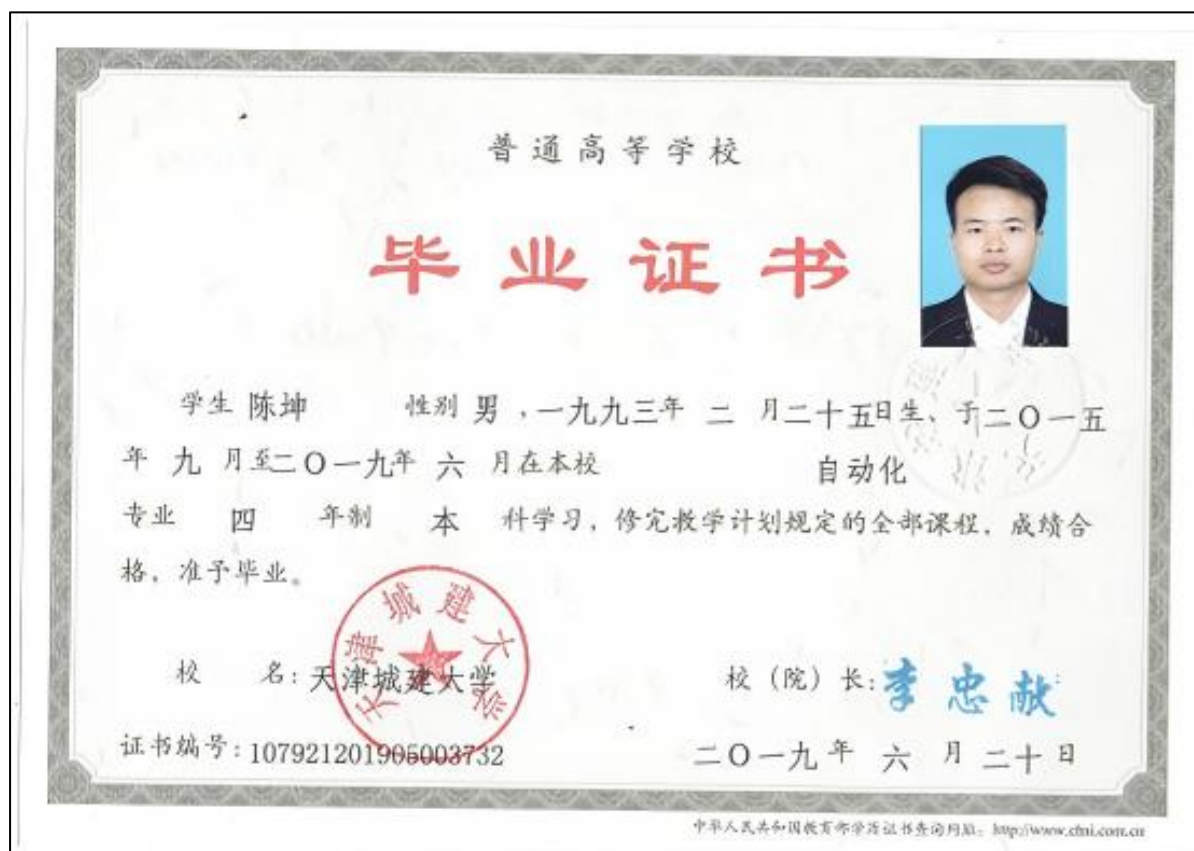 普通高等学校
毕业证书
学生 陈坤 性别 男 ，一九九三年 二 月二十五日生、于二〇一五
年 九 月至二〇一九年 六 月在本校 自动化
专业 四 年制 本 科学习，修完教学计划规定的全部课程，成绩合
格，准予毕业。
天津城建大学
校 名：天津城建大学 校（院）长：李忠献
证书编号：107921201905003732 二〇一九年 六 月 二十 日
中华人民共和国教育部学历证书查询网址：http://www.chsi.com.cn